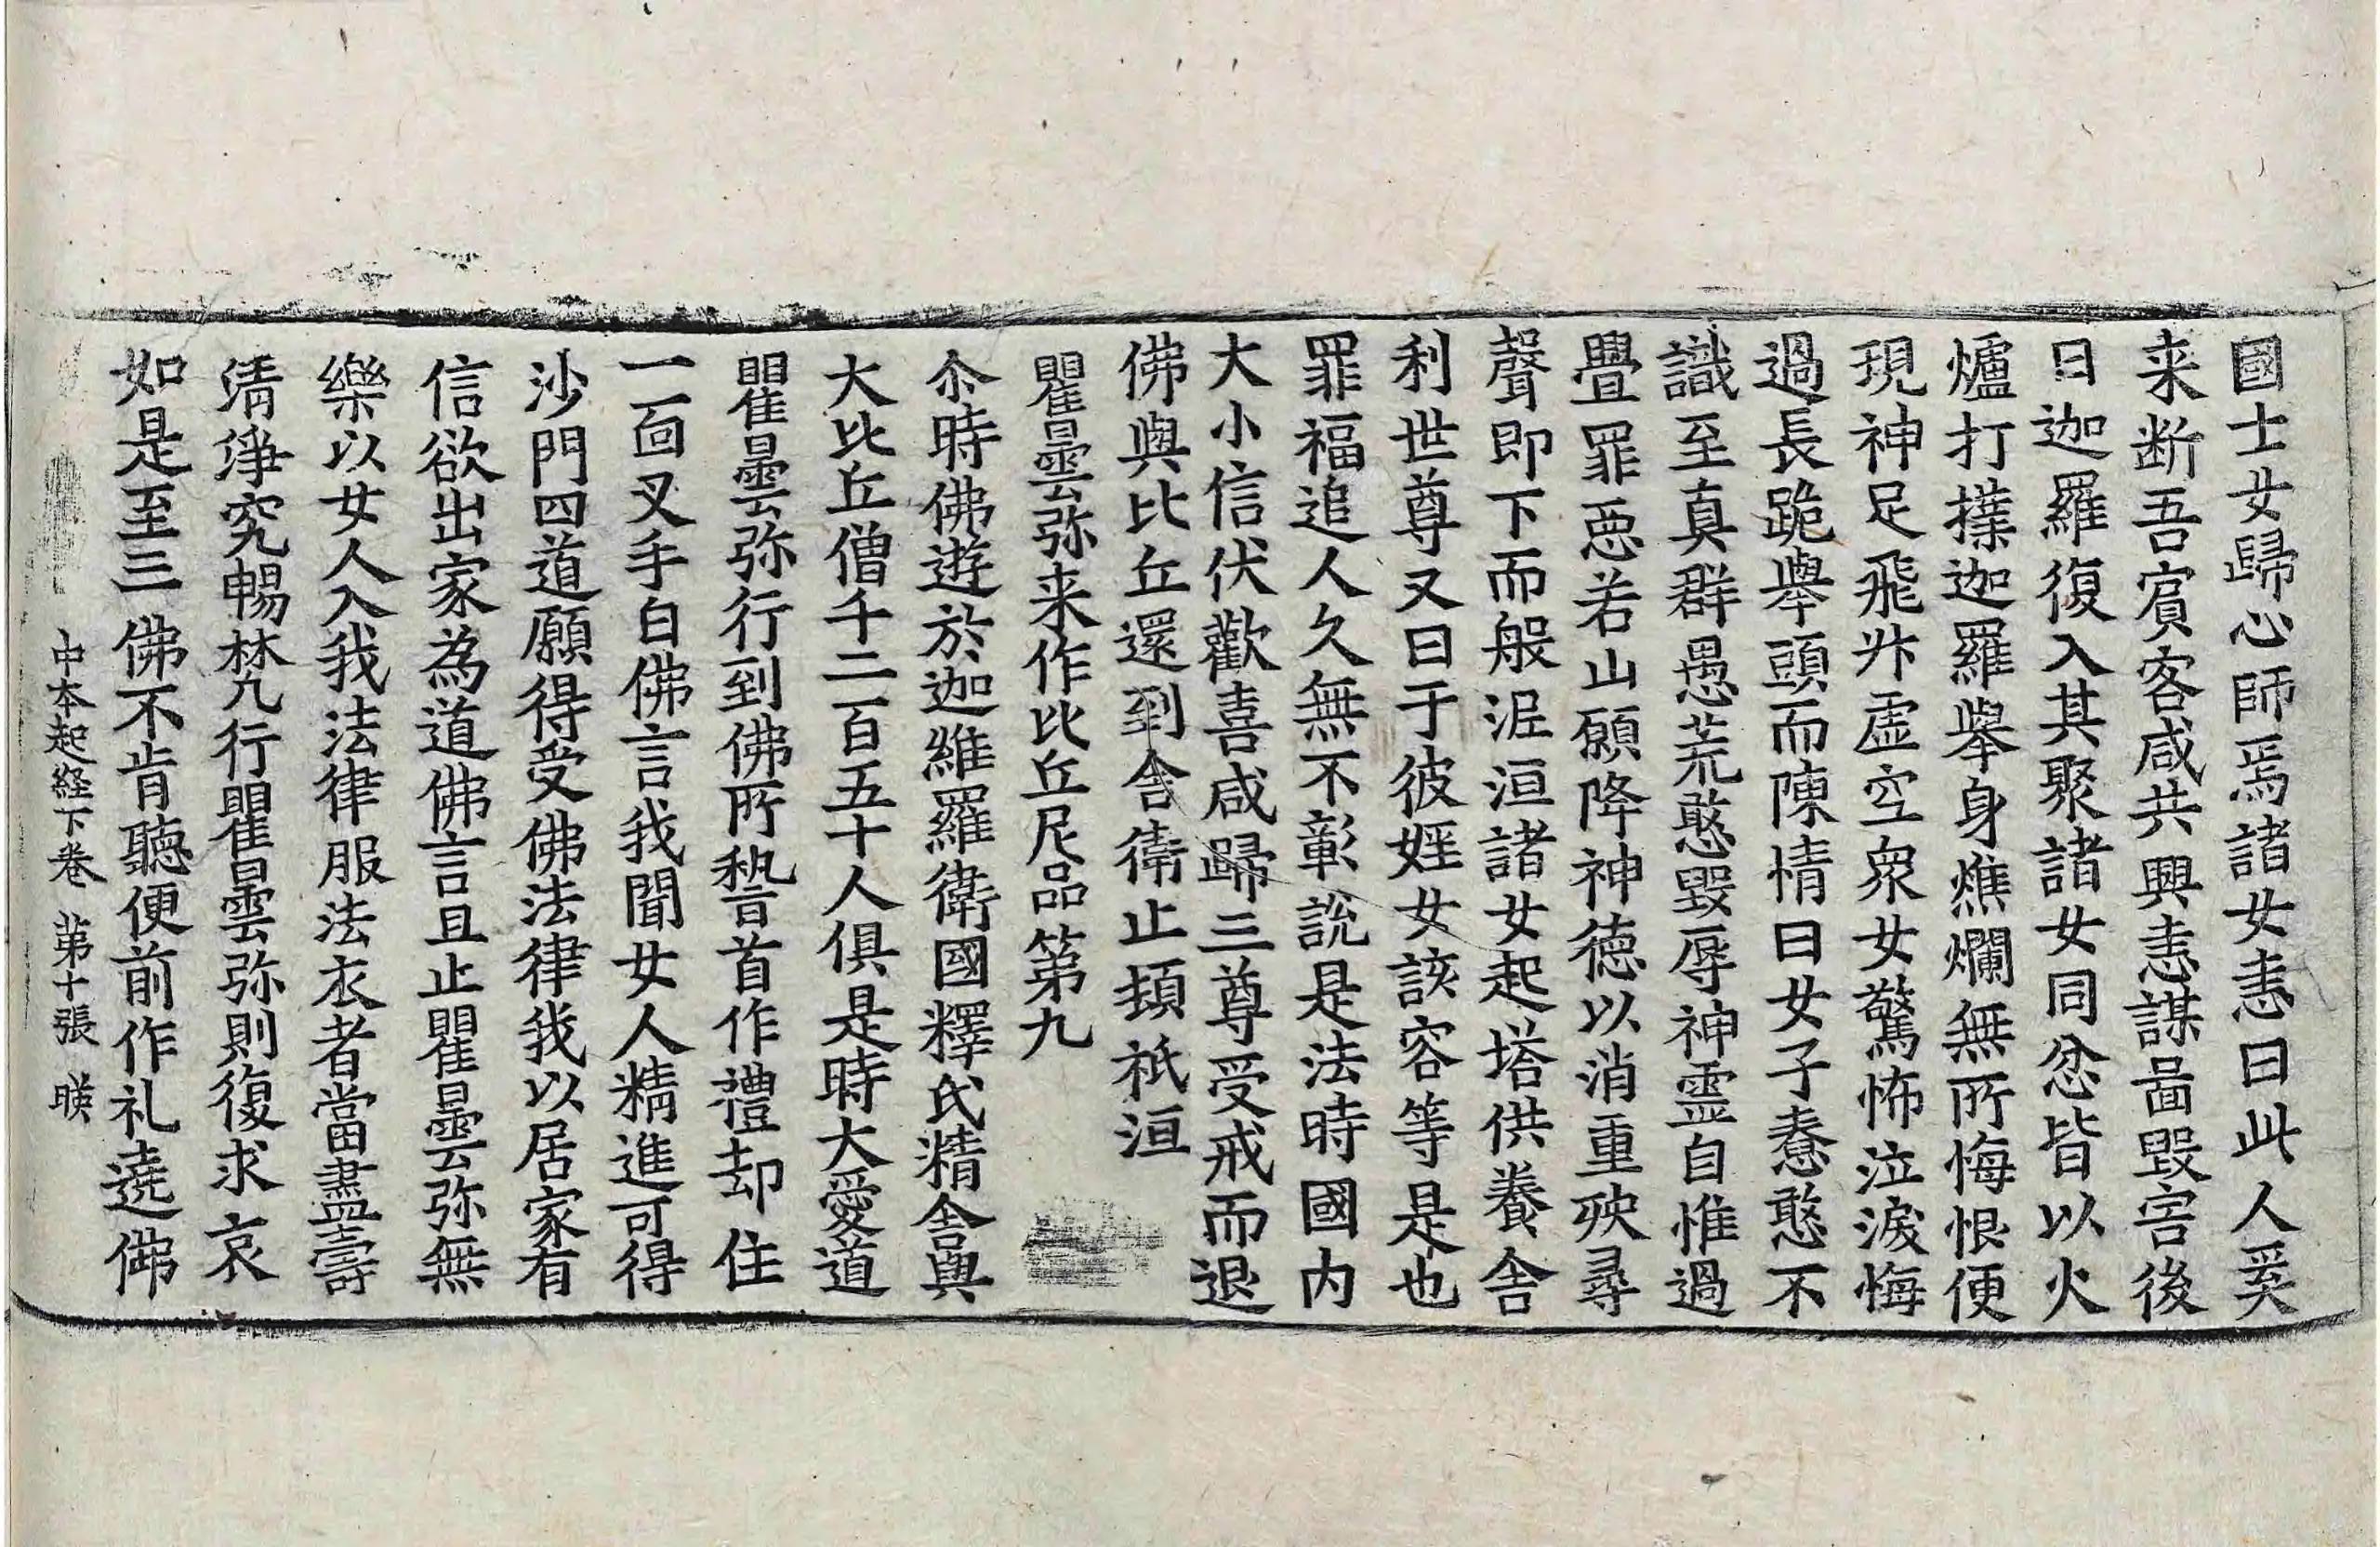 國士女歸心師焉諸女恚曰此人奚
来断吾賔客咸共興恚謀啚毀害後
日迦羅復入其聚諸女同忿皆以火
爐打擈迦羅舉身燋爛無所悔恨便
現神足飛步虛空衆女驚怖泣淚悔
過長跪舉頭而陳情曰女子憃憨不
識至真群愚荒憨毀辱神靈自惟過
舋罪惡若山願降神德以消重殃尋
聲即下而般泥洹諸女起塔供養舍
利世尊又曰于彼婬女該容等是也
罪福追人久無不彰說是法時國內
大小信伏歡喜咸歸三尊受戒而退
佛與比丘還到舍衛止頞祇洹
瞿曇弥来作比丘尼品第九
尒時佛遊於迦維羅衛國釋氏精舍與
大比丘僧千二百五十人俱是時大愛道
瞿曇弥行到佛所稽首作禮却住
一面叉手白佛言我聞女人精進可得
沙門四道願得受佛法律我以居家有
信欲出家為道佛言且止瞿曇弥無
樂以女人入我法律服法衣者當盡壽
清淨究暢梵行瞿曇弥則復求哀
如是至三佛不肯聽便前作礼遶佛
中本起經下卷 第十張